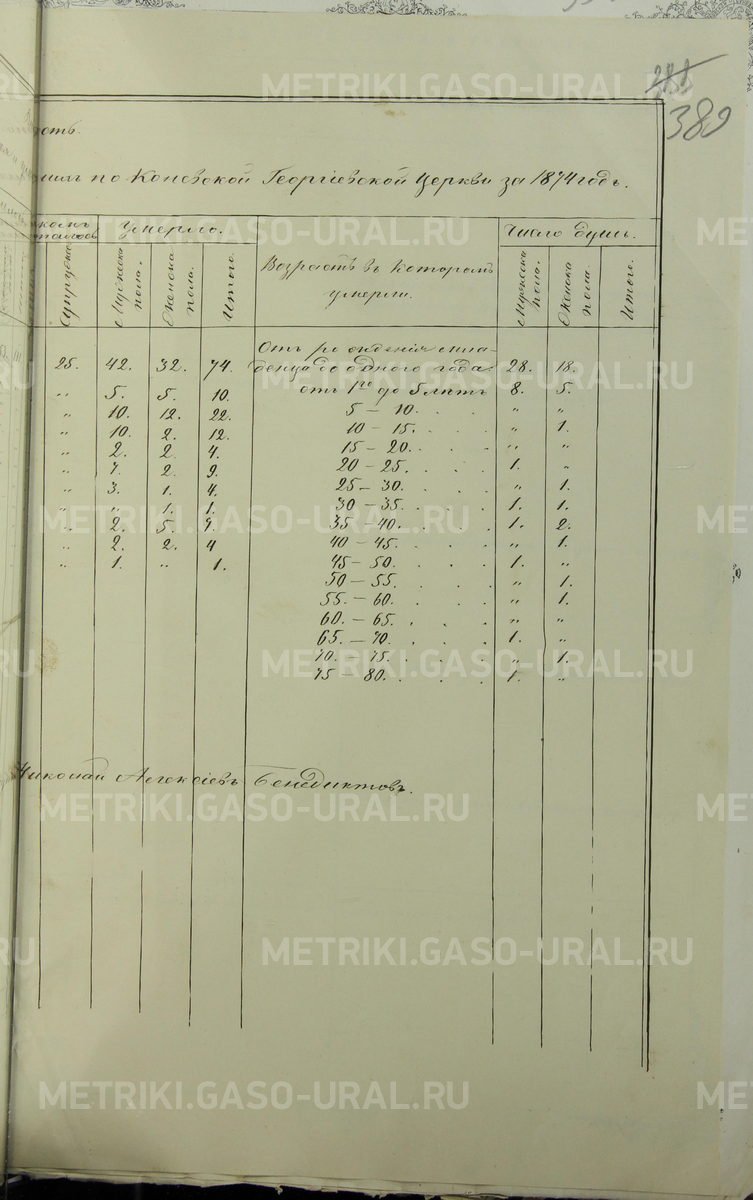 281
389
ость
по Коневской Георгіевской Церкви за 1874 годъ.
Умерло. Число душъ.
Супруговъ Мужеска пола. Женска пола. Итого. Возрастъ въ которомъ умерли. Мужеска пола. Женска пола. Итого.
Отъ рожденія мла-
25. 42. 32. 74. денца до одного года 28. 18.
" 5. 5. 10. отъ 1го до 5 лѣтъ 8. 5.
" 10. 12. 22. 5 – 10. . . " "
" 10. 2. 12. 10 – 15. . . . " 1.
" 2. 2. 4. 15 – 20. . . . " "
" 7. 2. 9. 20 – 25. . . . 1. "
" 3. 1. 4. 25 – 30. . . . " 1.
" " 1. 1. 30 – 35. . . . 1. 1.
" 2. 5. 7. 35 – 40. . . . 1. 2.
" 2. 2. 4 40 – 45. . . . " 1.
" 1. " 1. 45 – 50. . . . 1. "
50 – 55. . . . " 1.
55. – 60. . . . " 1.
60. – 65. . . . " "
65. – 70. . . . 1. "
70. – 75. . . . " 1.
75 – 80. . . . 1. "
Николай Алексіевъ Бенедиктовъ.
METRIKI.GASO-URAL.RU